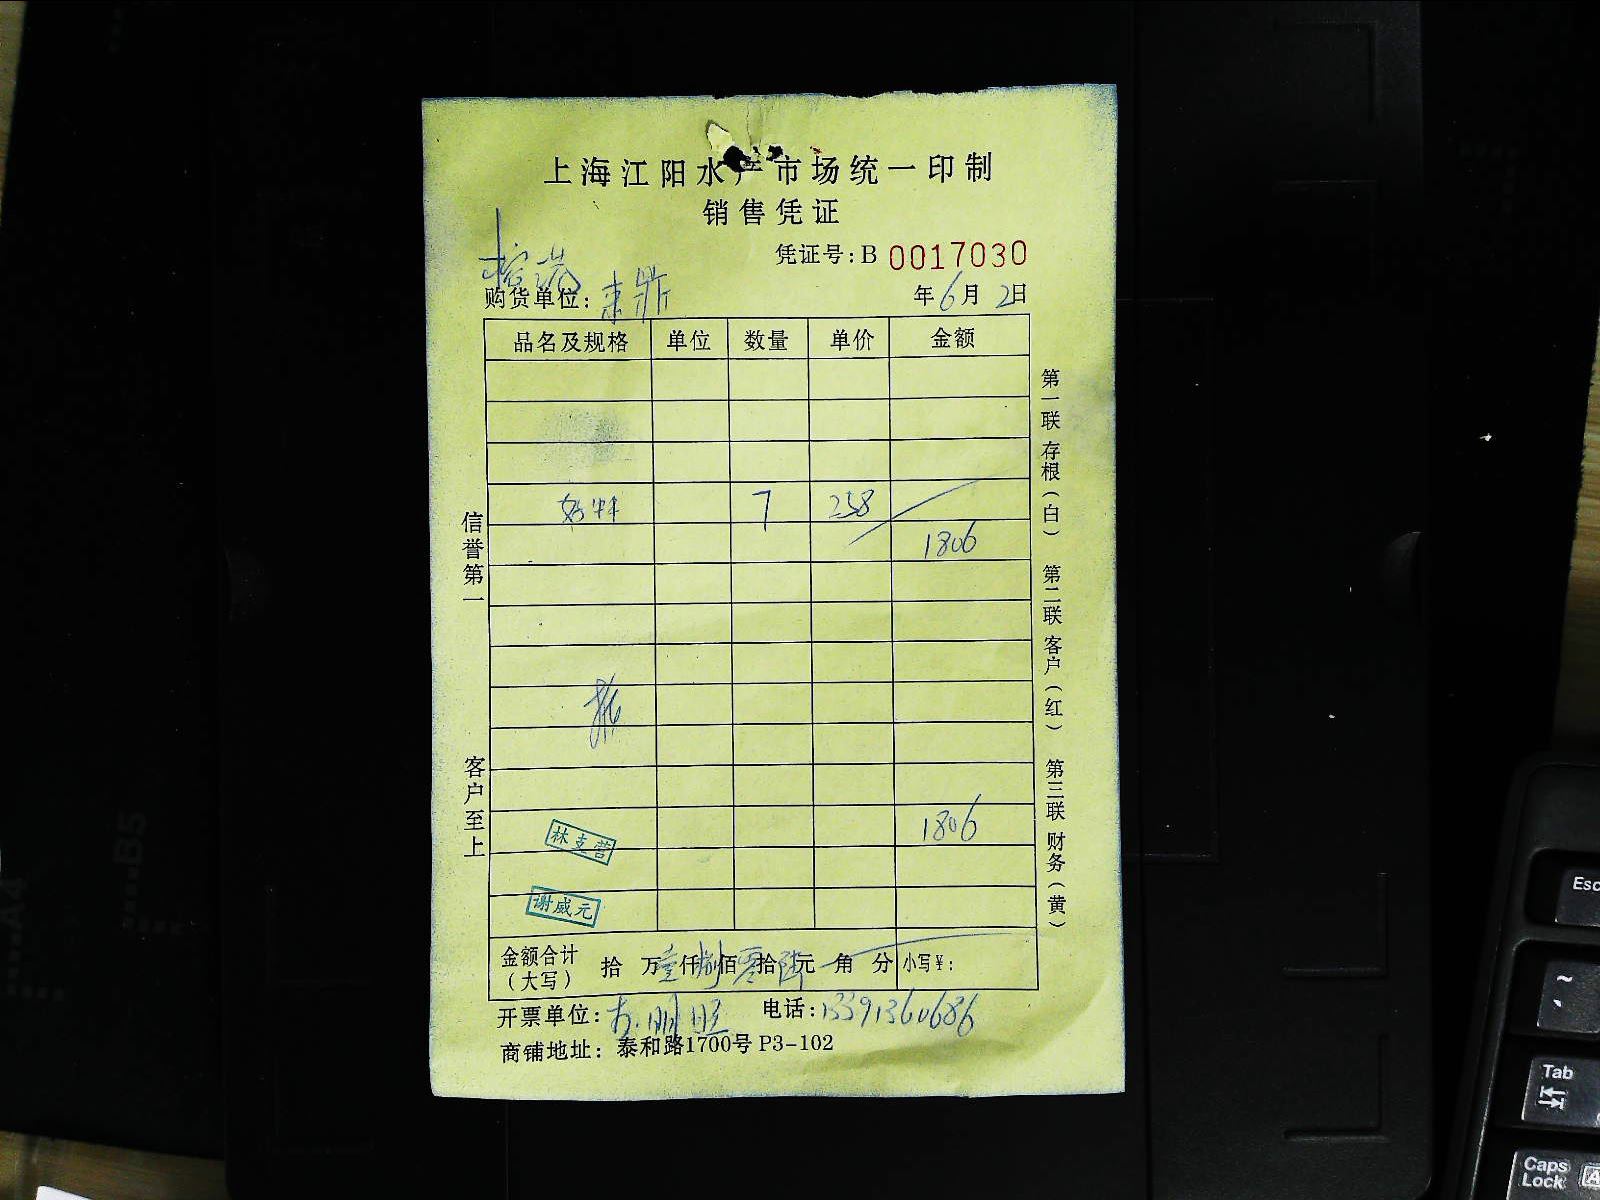 上海江阳水产市场统一印制
销售凭证
凭证号：B 0017030
购货单位：
年6月2日
品名及规格 单位 数量 单价 金额
7 258
1806
1806
林圭营
谢威元
金额合计（大写） 拾 万壹仟捌佰零拾陆元 角 分 小写￥：
开票单位： 电话：13391360686
商铺地址：泰和路1700号 P3-102
信誉第一
客户至上
第一联 存根（白）
第二联 客户（红）
第三联 财务（黄）
A4
B5
Esc
~
Tab
Caps Lock
A